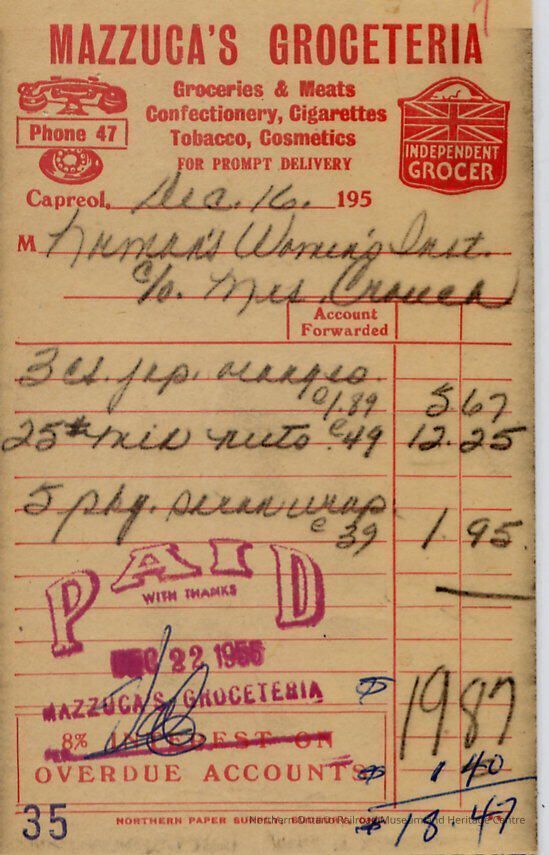 MAZZUCA'S GROCETERIA
Groceries & Meats
Confectionery, Cigarettes
Tobacco, Cosmetics
FOR PROMPT DELIVERY
Phone 47
INDEPENDENT
GROCER
Capreol, Dec. 16. 195
M Norman's Women's Inst.
c/o. Mrs. Crouch
Account
Forwarded
3 cs. jap. oranges.
@1.89 5.67
25# mix nuts @.49 12.25
5 pkg. saran wrap.
@ 39 1.95
PAID
WITH THANKS
DEC 22 1955
MAZZUCA'S GROCETERIA
$ 19 87
8% INTEREST ON
OVERDUE ACCOUNTS
$ 1 40
$ 18.47
35
NORTHERN PAPER
Northern Ontario Railroad Museum and Heritage Centre